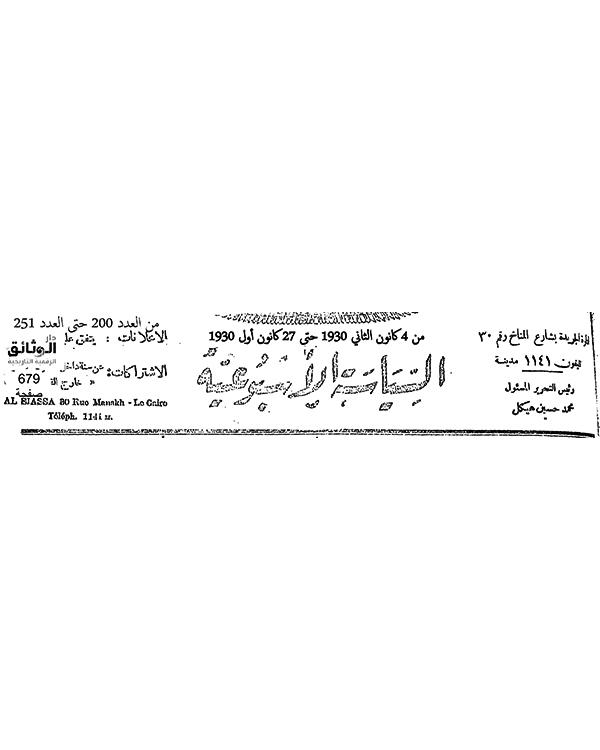 إدارة الجريدة بشارع المناخ رقم ٣٠
تليفون ١١٤١ مدينة
رئيس التحرير المسئول
محمد حسين هيكل
من 4 كانون الثاني 1930 حتى 27 كانون أول 1930
السياسة الأسبوعية
من العدد 200 حتى العدد 251
الاعلانات : يتفق علي
الاشتراكات: عن سنة داخل
« خارج
دار
الوثائق
الرقمية التاريخية
679
صفحة
AL SIASSA 30 Rue Manakh - Le Caire
Téléph. 1141 M.